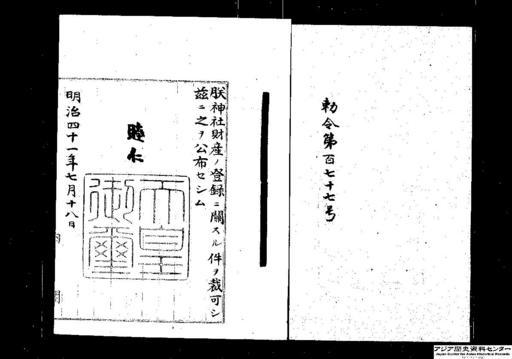 勅令第百七十七号
朕神社財産ノ登録ニ關スル件ヲ裁可シ
茲ニ之ヲ公布セシム
睦仁
天皇御璽
明治四十一年七月十八日
内
アジア歴史資料センター
Japan Center for Asian Historical Records